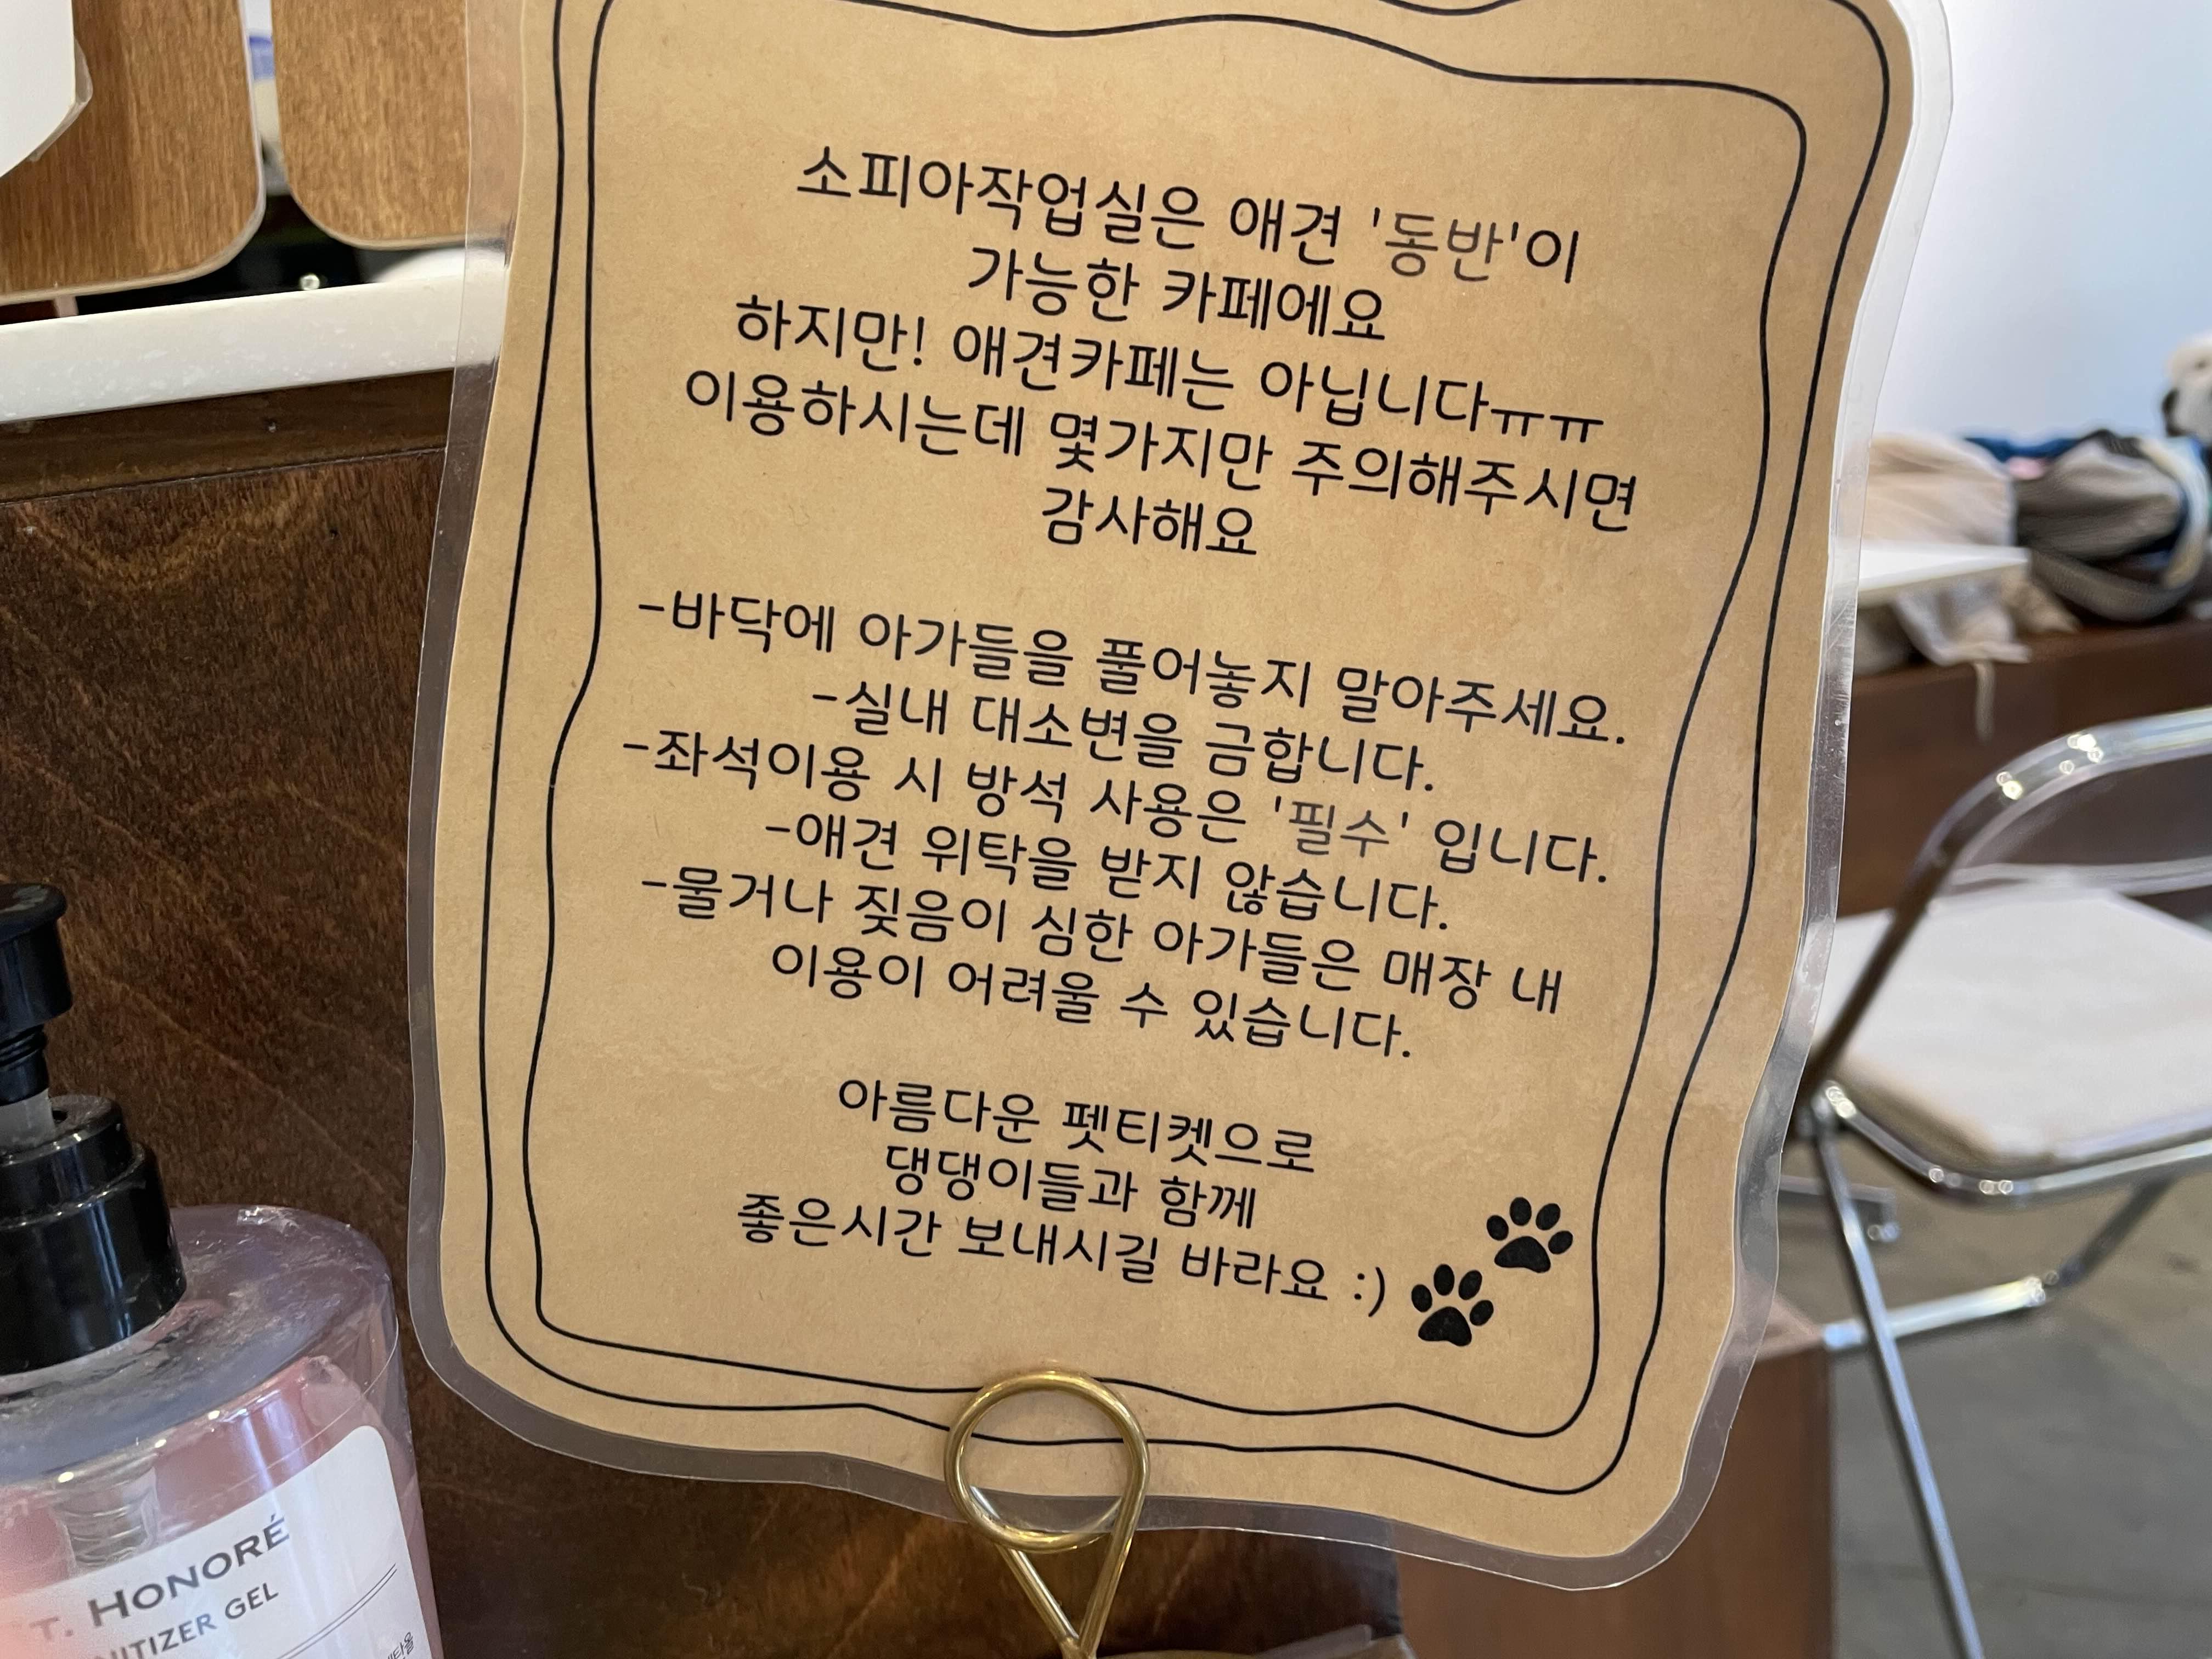 소피아작업실은 애견 '동반'이
가능한 카페에요
하지만! 애견카페는 아닙니다ㅠㅠ
이용하시는데 몇가지만 주의해주시면
감사해요
-바닥에 아가들을 풀어놓지 말아주세요.
-실내 대소변을 금합니다.
-좌석이용 시 방석 사용은 '필수' 입니다.
-애견 위탁을 받지 않습니다.
-물거나 짖음이 심한 아가들은 매장 내
이용이 어려울 수 있습니다.
아름다운 펫티켓으로
댕댕이들과 함께
좋은시간 보내시길 바라요 :)
T. HONORÉ
NITIZER GEL